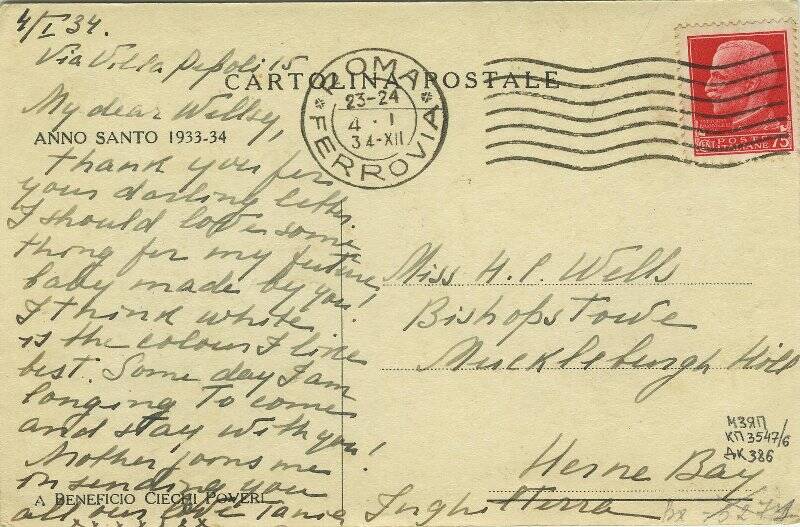 4/I 34.
Via Villa Pepoli 15
CARTOLINA POSTALE
My dear Wellsy,
ANNO SANTO 1933-34
Thank you for
your darling letter.
I should love some
thing for my future
baby made by you!
I think white
is the colour I like
best. Some day I am
longing to come
and stay with you!
Mother joins me
in sending you
all our love Tania
x x x x x x x
A BENEFICIO CIECHI POVERI
ROMA
FERROVIA
23-24
4 · I
34-XII
POSTE
ITALIANE 75
Miss H. P. Wells
Bishops Towe
Muckleburgh Hill
Herne Bay
Inghilterra
МЗЯП
КП3547/6
ДК386